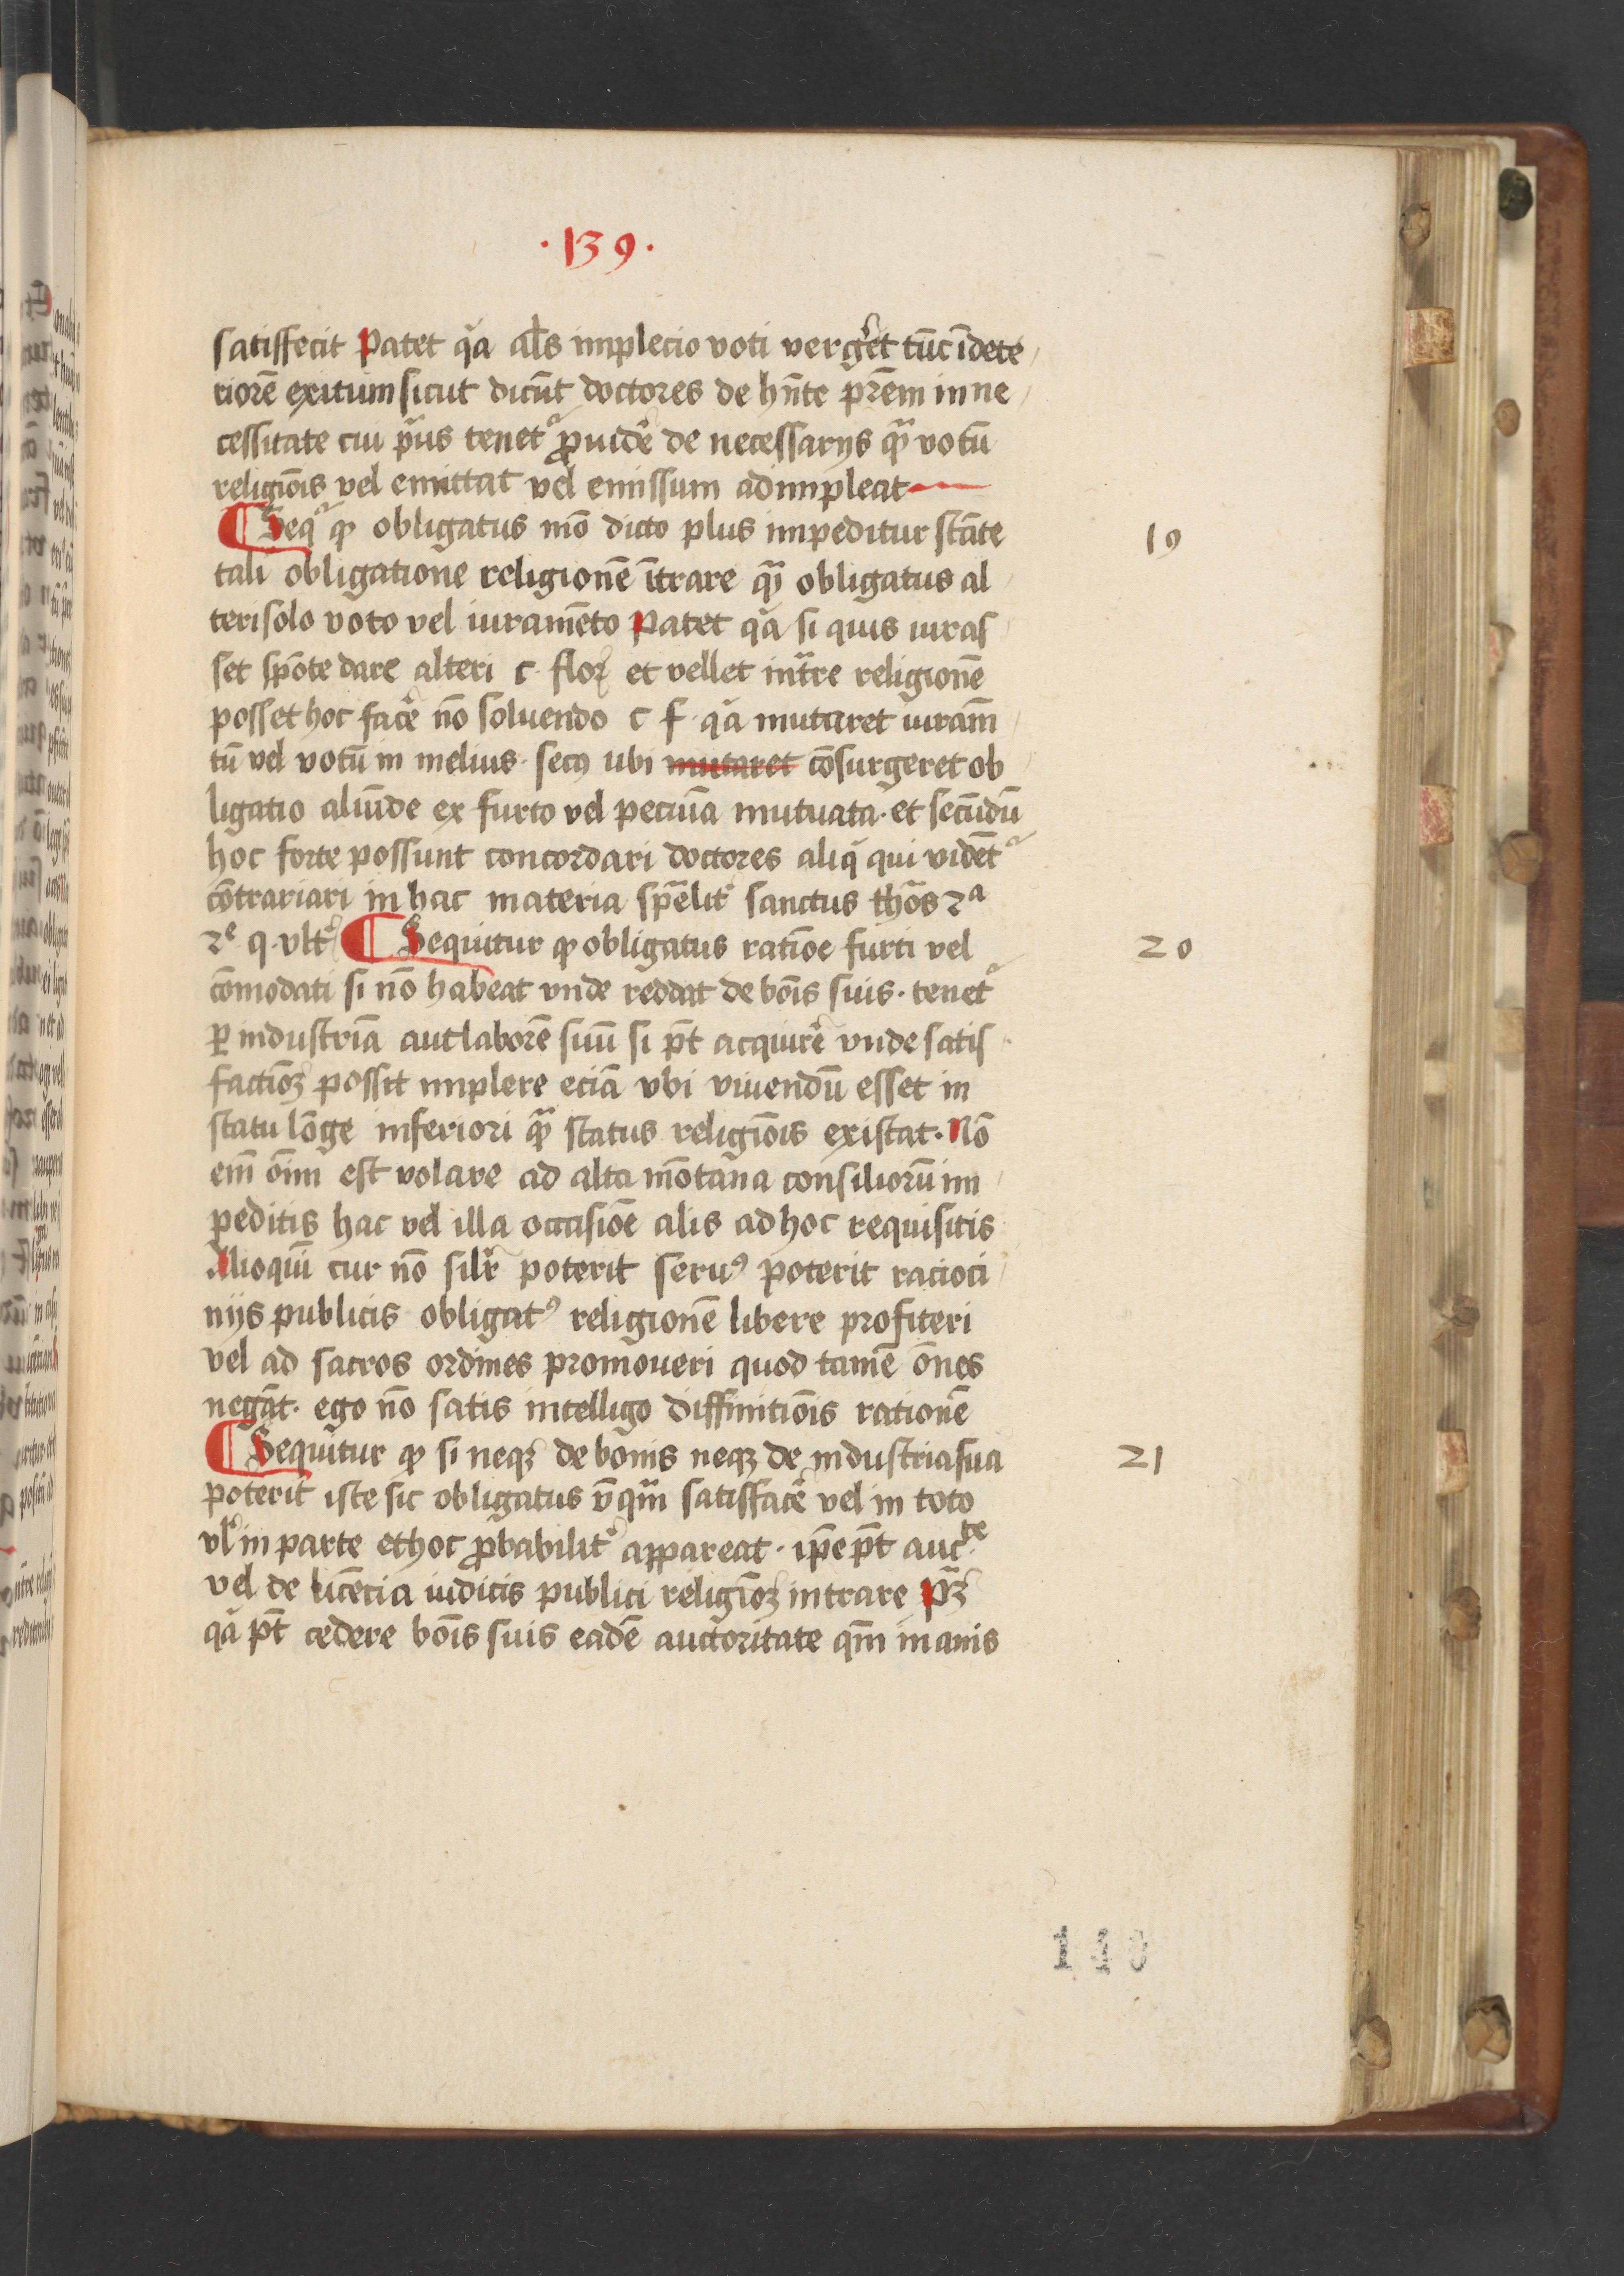 ·139·
satisffecit Patet q̃a al̃s implecio voti vergeret tũc ĩ dete
riorẽ exitum sicut dicũt doctores de hñte pr̃em in ne
cessitate cui pͥus tenetᷣ ꝓuidẽ de necessarijs qᷓ votũ
religiõis vel emittat vel emissum adimpleat
¶ Seqᷣ ꝙ obligatus mõ dicto plus impeditur stãte
19
tali obligatione religionẽ ĩtrare qᷓ obligatus al
teri solo voto vel iuramẽto Patet q̃a si quis iuras
set spõte dare alteri c florꝭ et vellet intᷓre religionẽ
posset hoc facẽ nõ soluendo c f· q̃a mutaret iuram̃
tũ vel votũ in melius· secꝰ ubi mutaret cõsurgeret ob
ligatio aliũde ex furto vel pecũia mutuata· et secũdũ
hoc forte possunt concordari doctores aliq̃ qui videtᷣ
cõtrariari in hac materia spẽalitᷣ sanctus thõs 2ᵃ
2ᵉ q· vltᷣ ¶ Sequitur ꝙ obligatus ratiõe furti vel
20
cõmodati si nõ habeat vnde reddat de bõis suis· tenetᷣ
ꝑ industriã aut laborẽ suũ si p̃t acquirẽ vnde satis
factiõꝫ possit implere eciã vbi viuendũ esset in
statu lõge inferiori qᷓ status religiõis existat· Nõ
em̃ õim est volare ad alta mõtana consiliorũ im
peditis hac vel illa occasiõe alis ad hoc requisitis
Alioqui cur nõ sil̃r poterit seruꝰ poterit racioci
nijs publicis obligatꝰ religionẽ libere profiteri
vel ad sacros ordines promoueri quod tamẽ õnes
negãt· ego nõ satis intelligo diffinitiõis rationẽ
¶ Sequitur ꝙ si neqꝫ de bonis neqꝫ de industria sua
21
poterit iste sic obligatus vñqᷓm satisffacẽ vel in toto
vl̃ in parte et hoc ꝓbabilitᷣ appareat· ip̃e p̃t aucᵗᵉ
vel de licẽcia iudicis publici religiõꝫ intrare pᷓꝫ
q̃a p̃t cedere bõis suis eadẽ auctoritate qm̃ inanis
140